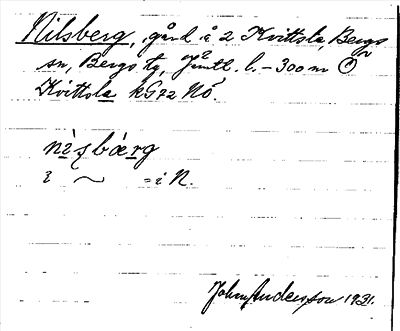 Nilsberg, gård i 2 Kvittsle, Bergs
sn, Bergs tg, Jämtl. l. – 300 m
Kvittsla kG72 Nö.
nìsbærg
i ~ = i N.
John Anderson 1931.